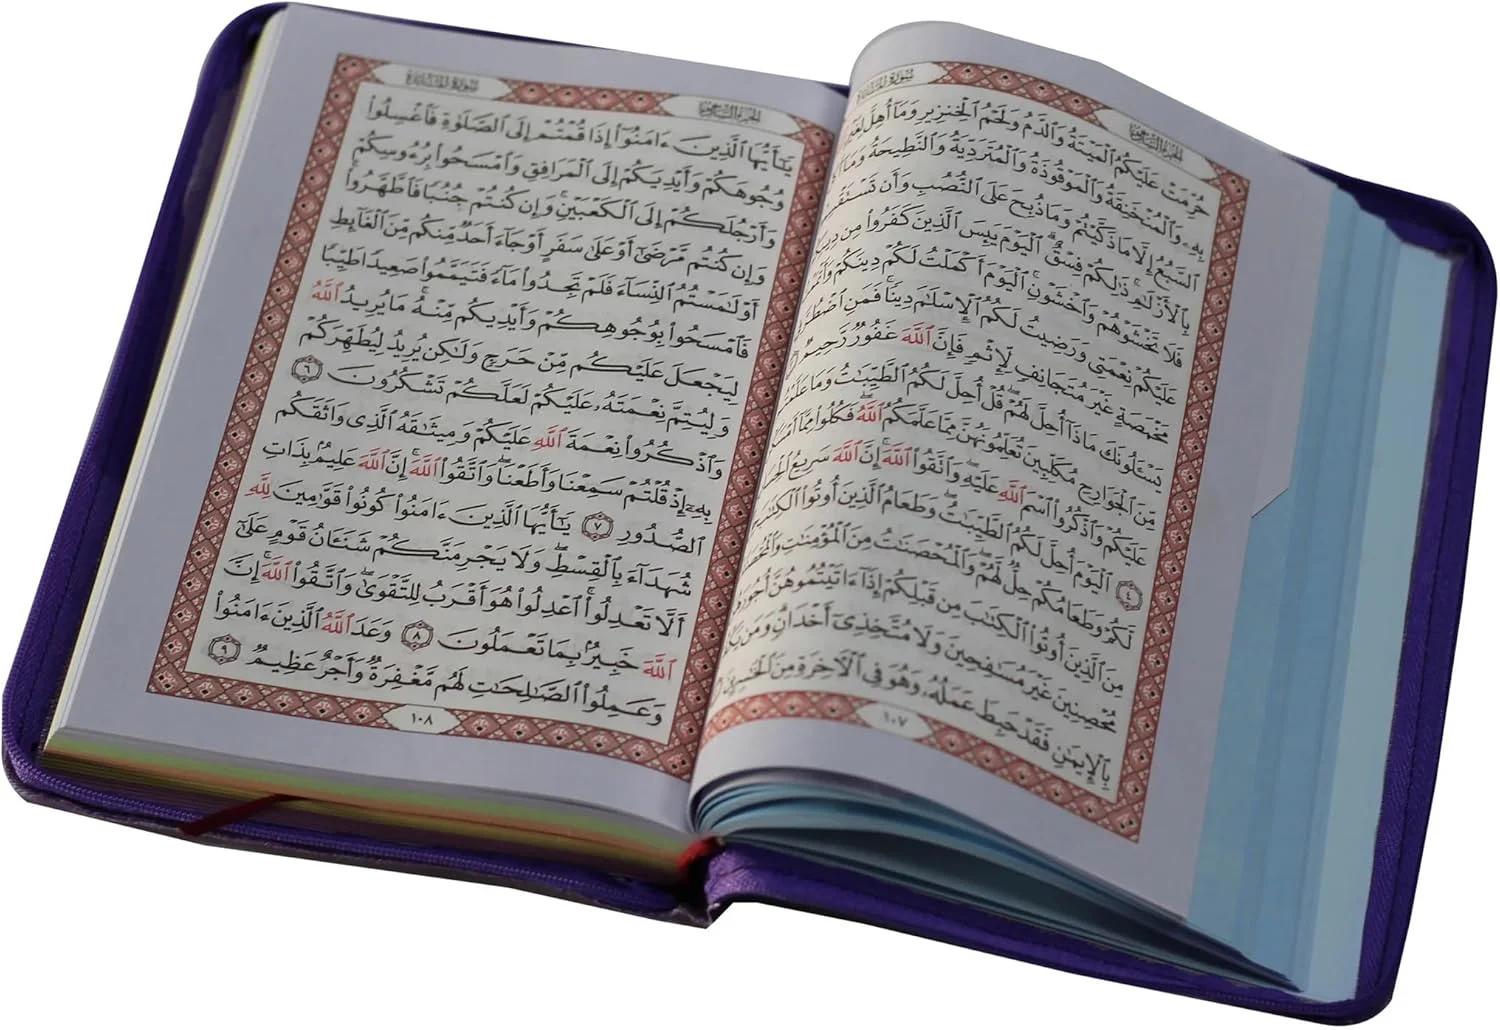 الجزء السادس سورة المائدة
حُرِّمَتْ عَلَيْكُمُ ٱلْمَيْتَةُ وَٱلدَّمُ وَلَحْمُ ٱلْخِنزِيرِ وَمَآ أُهِلَّ
بِهِۦ وَٱلْمُنْخَنِقَةُ وَٱلْمَوْقُوذَةُ وَٱلْمُتَرَدِّيَةُ وَٱلنَّطِيحَةُ وَمَآ
ٱلسَّبُعُ إِلَّا مَا ذَكَّيْتُمْ وَمَا ذُبِحَ عَلَى ٱلنُّصُبِ وَأَن
بِٱلْأَزْلَٰمِ ۚ ذَٰلِكُمْ فِسْقٌ ۗ ٱلْيَوْمَ يَئِسَ ٱلَّذِينَ كَفَرُوا۟ مِن
فَلَا تَخْشَوْهُمْ وَٱخْشَوْنِ ۚ ٱلْيَوْمَ أَكْمَلْتُ لَكُمْ دِينَكُمْ
عَلَيْكُمْ نِعْمَتِى وَرَضِيتُ لَكُمُ ٱلْإِسْلَٰمَ دِينًا ۚ فَمَنِ
مَخْمَصَةٍ غَيْرَ مُتَجَانِفٍ لِّإِثْمٍ ۙ فَإِنَّ ٱللَّهَ غَفُورٌ رَّحِيمٌ
يَسْـَٔلُونَكَ مَاذَآ أُحِلَّ لَهُمْ ۖ قُلْ أُحِلَّ لَكُمُ ٱلطَّيِّبَٰتُ ۙ وَمَا
مِّنَ ٱلْجَوَارِحِ مُكَلِّبِينَ تُعَلِّمُونَهُنَّ مِمَّا عَلَّمَكُمُ ٱللَّهُ ۖ فَكُلُوا۟ مِمَّآ
عَلَيْكُمْ وَٱذْكُرُوا۟ ٱسْمَ ٱللَّهِ عَلَيْهِ ۖ وَٱتَّقُوا۟ ٱللَّهَ ۚ إِنَّ ٱللَّهَ سَرِيعُ
٤ ٱلْيَوْمَ أُحِلَّ لَكُمُ ٱلطَّيِّبَٰتُ ۖ وَطَعَامُ ٱلَّذِينَ أُوتُوا۟ ٱلْكِتَٰبَ
لَكُمْ وَطَعَامُكُمْ حِلٌّ لَّهُمْ ۖ وَٱلْمُحْصَنَٰتُ مِنَ ٱلْمُؤْمِنَٰتِ
مِنَ ٱلَّذِينَ أُوتُوا۟ ٱلْكِتَٰبَ مِن قَبْلِكُمْ إِذَآ ءَاتَيْتُمُوهُنَّ
مُحْصِنِينَ غَيْرَ مُسَٰفِحِينَ وَلَا مُتَّخِذِىٓ أَخْدَانٍ ۗ وَمَن
بِٱلْإِيمَٰنِ فَقَدْ حَبِطَ عَمَلُهُۥ وَهُوَ فِى ٱلْءَاخِرَةِ مِنَ ٱلْخَٰسِرِينَ
١٠٧
الجزء السادس سورة المائدة
يَٰٓأَيُّهَا ٱلَّذِينَ ءَامَنُوٓا۟ إِذَا قُمْتُمْ إِلَى ٱلصَّلَوٰةِ فَٱغْسِلُوا۟
وُجُوهَكُمْ وَأَيْدِيَكُمْ إِلَى ٱلْمَرَافِقِ وَٱمْسَحُوا۟ بِرُءُوسِكُمْ
وَأَرْجُلَكُمْ إِلَى ٱلْكَعْبَيْنِ ۚ وَإِن كُنتُمْ جُنُبًا فَٱطَّهَّرُوا۟ ۚ
وَإِن كُنتُم مَّرْضَىٰٓ أَوْ عَلَىٰ سَفَرٍ أَوْ جَآءَ أَحَدٌ مِّنكُم مِّنَ ٱلْغَآئِطِ
أَوْ لَٰمَسْتُمُ ٱلنِّسَآءَ فَلَمْ تَجِدُوا۟ مَآءً فَتَيَمَّمُوا۟ صَعِيدًا طَيِّبًا
فَٱمْسَحُوا۟ بِوُجُوهِكُمْ وَأَيْدِيكُم مِّنْهُ ۚ مَا يُرِيدُ ٱللَّهُ
لِيَجْعَلَ عَلَيْكُم مِّنْ حَرَجٍ وَلَٰكِن يُرِيدُ لِيُطَهِّرَكُمْ
وَلِيُتِمَّ نِعْمَتَهُۥ عَلَيْكُمْ لَعَلَّكُمْ تَشْكُرُونَ ٦
وَٱذْكُرُوا۟ نِعْمَةَ ٱللَّهِ عَلَيْكُمْ وَمِيثَٰقَهُ ٱلَّذِى وَاثَقَكُم
بِهِۦٓ إِذْ قُلْتُمْ سَمِعْنَا وَأَطَعْنَا ۖ وَٱتَّقُوا۟ ٱللَّهَ ۚ إِنَّ ٱللَّهَ عَلِيمٌۢ بِذَاتِ
ٱلصُّدُورِ ٧ يَٰٓأَيُّهَا ٱلَّذِينَ ءَامَنُوا۟ كُونُوا۟ قَوَّٰمِينَ لِلَّهِ
شُهَدَآءَ بِٱلْقِسْطِ ۖ وَلَا يَجْرِمَنَّكُمْ شَنَـَٔانُ قَوْمٍ عَلَىٰٓ
أَلَّا تَعْدِلُوا۟ ۚ ٱعْدِلُوا۟ هُوَ أَقْرَبُ لِلتَّقْوَىٰ ۖ وَٱتَّقُوا۟ ٱللَّهَ ۚ إِنَّ
ٱللَّهَ خَبِيرٌۢ بِمَا تَعْمَلُونَ ٨ وَعَدَ ٱللَّهُ ٱلَّذِينَ ءَامَنُوا۟
وَعَمِلُوا۟ ٱلصَّٰلِحَٰتِ ۙ لَهُم مَّغْفِرَةٌ وَأَجْرٌ عَظِيمٌ ٩
١٠٨